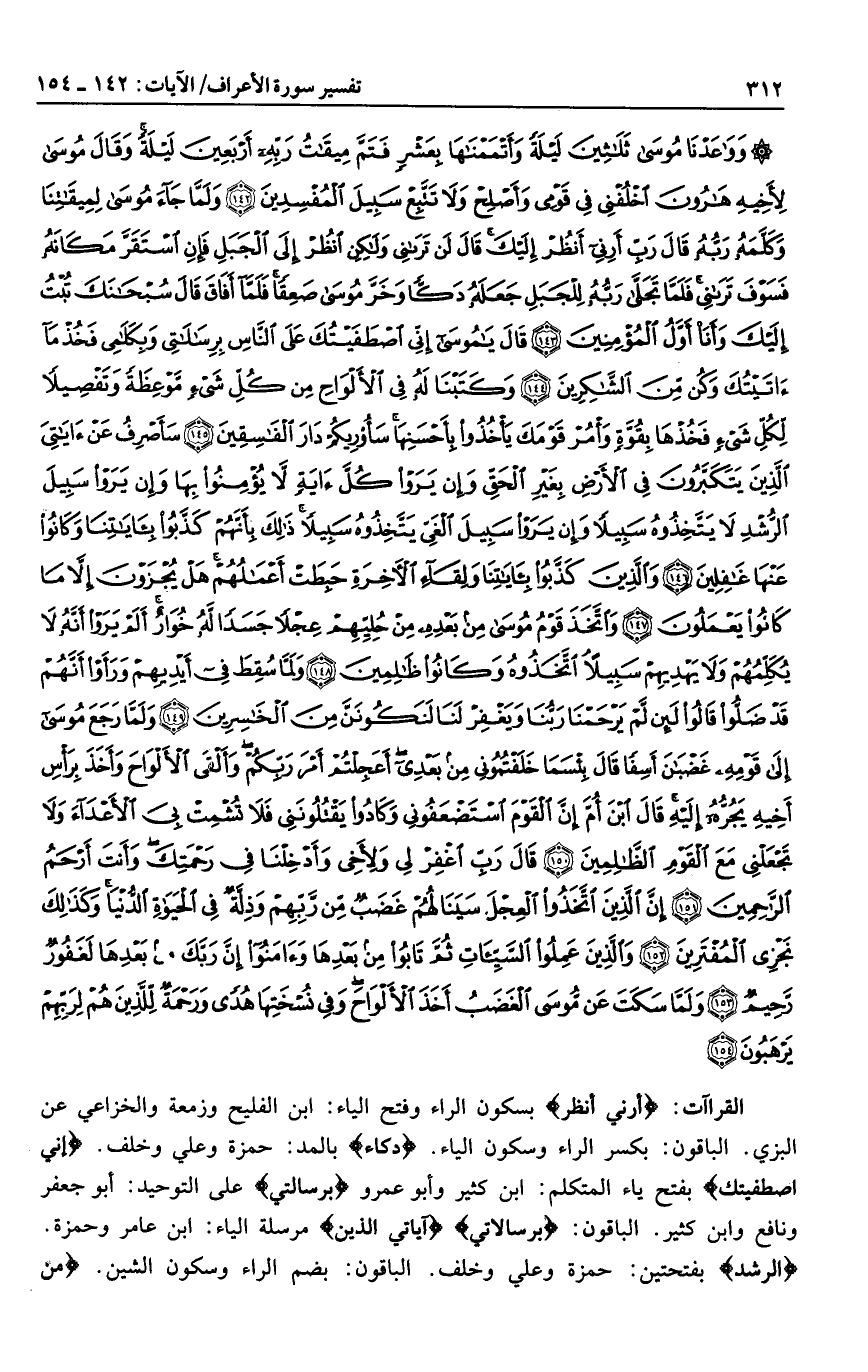 ٣١٢ تفسير سورة الأعراف/ الآيات: ١٤٢ ـ ١٥٤
۞ وَوَٰعَدْنَا مُوسَىٰ ثَلَٰثِينَ لَيْلَةً وَأَتْمَمْنَٰهَا بِعَشْرٍ فَتَمَّ مِيقَٰتُ رَبِّهِۦٓ أَرْبَعِينَ لَيْلَةً ۚ وَقَالَ مُوسَىٰ
لِأَخِيهِ هَٰرُونَ ٱخْلُفْنِى فِى قَوْمِى وَأَصْلِحْ وَلَا تَتَّبِعْ سَبِيلَ ٱلْمُفْسِدِينَ ﴿١٤٢﴾ وَلَمَّا جَآءَ مُوسَىٰ لِمِيقَٰتِنَا
وَكَلَّمَهُۥ رَبُّهُۥ قَالَ رَبِّ أَرِنِىٓ أَنظُرْ إِلَيْكَ ۚ قَالَ لَن تَرَىٰنِى وَلَٰكِنِ ٱنظُرْ إِلَى ٱلْجَبَلِ فَإِنِ ٱسْتَقَرَّ مَكَانَهُۥ
فَسَوْفَ تَرَىٰنِى ۚ فَلَمَّا تَجَلَّىٰ رَبُّهُۥ لِلْجَبَلِ جَعَلَهُۥ دَكًّا وَخَرَّ مُوسَىٰ صَعِقًا ۚ فَلَمَّآ أَفَاقَ قَالَ سُبْحَٰنَكَ تُبْتُ
إِلَيْكَ وَأَنَا۠ أَوَّلُ ٱلْمُؤْمِنِينَ ﴿١٤٣﴾ قَالَ يَٰمُوسَىٰٓ إِنِّى ٱصْطَفَيْتُكَ عَلَى ٱلنَّاسِ بِرِسَٰلَٰتِى وَبِكَلَٰمِى فَخُذْ مَآ
ءَاتَيْتُكَ وَكُن مِّنَ ٱلشَّٰكِرِينَ ﴿١٤٤﴾ وَكَتَبْنَا لَهُۥ فِى ٱلْأَلْوَاحِ مِن كُلِّ شَىْءٍ مَّوْعِظَةً وَتَفْصِيلًا
لِّكُلِّ شَىْءٍ فَخُذْهَا بِقُوَّةٍ وَأْمُرْ قَوْمَكَ يَأْخُذُوا۟ بِأَحْسَنِهَا ۚ سَأُو۟رِيكُمْ دَارَ ٱلْفَٰسِقِينَ ﴿١٤٥﴾ سَأَصْرِفُ عَنْ ءَايَٰتِىَ
ٱلَّذِينَ يَتَكَبَّرُونَ فِى ٱلْأَرْضِ بِغَيْرِ ٱلْحَقِّ وَإِن يَرَوْا۟ كُلَّ ءَايَةٍ لَّا يُؤْمِنُوا۟ بِهَا وَإِن يَرَوْا۟ سَبِيلَ
ٱلرُّشْدِ لَا يَتَّخِذُوهُ سَبِيلًا وَإِن يَرَوْا۟ سَبِيلَ ٱلْغَىِّ يَتَّخِذُوهُ سَبِيلًا ۚ ذَٰلِكَ بِأَنَّهُمْ كَذَّبُوا۟ بِـَٔايَٰتِنَا وَكَانُوا۟
عَنْهَا غَٰفِلِينَ ﴿١٤٦﴾ وَٱلَّذِينَ كَذَّبُوا۟ بِـَٔايَٰتِنَا وَلِقَآءِ ٱلْءَاخِرَةِ حَبِطَتْ أَعْمَٰلُهُمْ ۚ هَلْ يُجْزَوْنَ إِلَّا مَا
كَانُوا۟ يَعْمَلُونَ ﴿١٤٧﴾ وَٱتَّخَذَ قَوْمُ مُوسَىٰ مِنۢ بَعْدِهِۦ مِنْ حُلِيِّهِمْ عِجْلًا جَسَدًا لَّهُۥ خُوَارٌ ۚ أَلَمْ يَرَوْا۟ أَنَّهُۥ لَا
يُكَلِّمُهُمْ وَلَا يَهْدِيهِمْ سَبِيلًا ۘ ٱتَّخَذُوهُ وَكَانُوا۟ ظَٰلِمِينَ ﴿١٤٨﴾ وَلَمَّا سُقِطَ فِىٓ أَيْدِيهِمْ وَرَأَوْا۟ أَنَّهُمْ
قَدْ ضَلُّوا۟ قَالُوا۟ لَئِن لَّمْ يَرْحَمْنَا رَبُّنَا وَيَغْفِرْ لَنَا لَنَكُونَنَّ مِنَ ٱلْخَٰسِرِينَ ﴿١٤٩﴾ وَلَمَّا رَجَعَ مُوسَىٰٓ
إِلَىٰ قَوْمِهِۦ غَضْبَٰنَ أَسِفًا قَالَ بِئْسَمَا خَلَفْتُمُونِى مِنۢ بَعْدِىٓ ۖ أَعَجِلْتُمْ أَمْرَ رَبِّكُمْ ۖ وَأَلْقَى ٱلْأَلْوَاحَ وَأَخَذَ بِرَأْسِ
أَخِيهِ يَجُرُّهُۥٓ إِلَيْهِ ۚ قَالَ ٱبْنَ أُمَّ إِنَّ ٱلْقَوْمَ ٱسْتَضْعَفُونِى وَكَادُوا۟ يَقْتُلُونَنِى فَلَا تُشْمِتْ بِىَ ٱلْأَعْدَآءَ وَلَا
تَجْعَلْنِى مَعَ ٱلْقَوْمِ ٱلظَّٰلِمِينَ ﴿١٥٠﴾ قَالَ رَبِّ ٱغْفِرْ لِى وَلِأَخِى وَأَدْخِلْنَا فِى رَحْمَتِكَ ۖ وَأَنتَ أَرْحَمُ
ٱلرَّٰحِمِينَ ﴿١٥١﴾ إِنَّ ٱلَّذِينَ ٱتَّخَذُوا۟ ٱلْعِجْلَ سَيَنَالُهُمْ غَضَبٌ مِّن رَّبِّهِمْ وَذِلَّةٌ فِى ٱلْحَيَوٰةِ ٱلدُّنْيَا ۚ وَكَذَٰلِكَ
نَجْزِى ٱلْمُفْتَرِينَ ﴿١٥٢﴾ وَٱلَّذِينَ عَمِلُوا۟ ٱلسَّيِّـَٔاتِ ثُمَّ تَابُوا۟ مِنۢ بَعْدِهَا وَءَامَنُوٓا۟ إِنَّ رَبَّكَ بَعْدِهَا لَغَفُورٌ
رَّحِيمٌ ﴿١٥٣﴾ وَلَمَّا سَكَتَ عَن مُّوسَى ٱلْغَضَبُ أَخَذَ ٱلْأَلْوَاحَ ۖ وَفِى نُسْخَتِهَا هُدًى وَرَحْمَةٌ لِّلَّذِينَ هُمْ لِرَبِّهِمْ
يَرْهَبُونَ ﴿١٥٤﴾
القراآت: ﴿أرني أنظر﴾ بسكون الراء وفتح الياء: ابن الفليح وزمعة والخزاعي عن
البزي. الباقون: بكسر الراء وسكون الياء. ﴿دكاء﴾ بالمد: حمزة وعلي وخلف. ﴿إني
اصطفيتك﴾ بفتح ياء المتكلم: ابن كثير وأبو عمرو ﴿برسالتي﴾ على التوحيد: أبو جعفر
ونافع وابن كثير. الباقون: ﴿برسالاتي﴾ ﴿آياتي الذين﴾ مرسلة الياء: ابن عامر وحمزة.
﴿الرشد﴾ بفتحتين: حمزة وعلي وخلف. الباقون: بضم الراء وسكون الشين. ﴿من